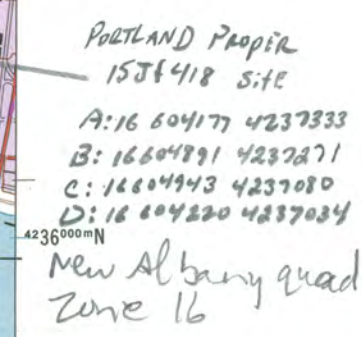 PORTLAND PROPER
15Jf418 Site
A: 16 604177 4237333
B: 16604891 4237271
C: 16604943 4237080
D: 16 604220 4237034
4236000mN
New Albany quad
Zone 16